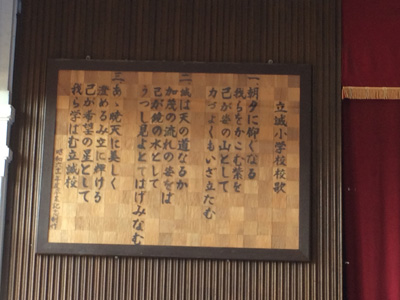 立誠小学校校歌
一 朝夕に仰ぐなる
我らをかこむ紫を
己が姿の山として
力づよくもいざ立たむ
二 誠は天の道なるか
加茂の流れの姿をば
己が鏡の水として
うつし見よとてはげみなむ
三 あゝ暁天に美しく
澄めるみ空に輝ける
己が希望の星として
我ら学ばむ立誠校